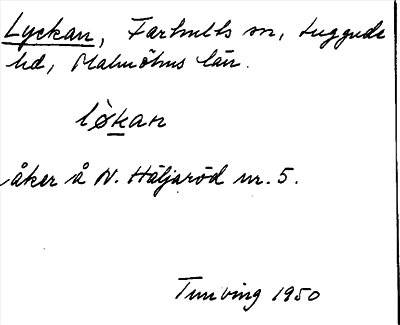 Lyckan, Farhults sn, Luggude
hd, Malmöhus län.
lø̀kan
åker å N. Häljaröd nr. 5.
1950